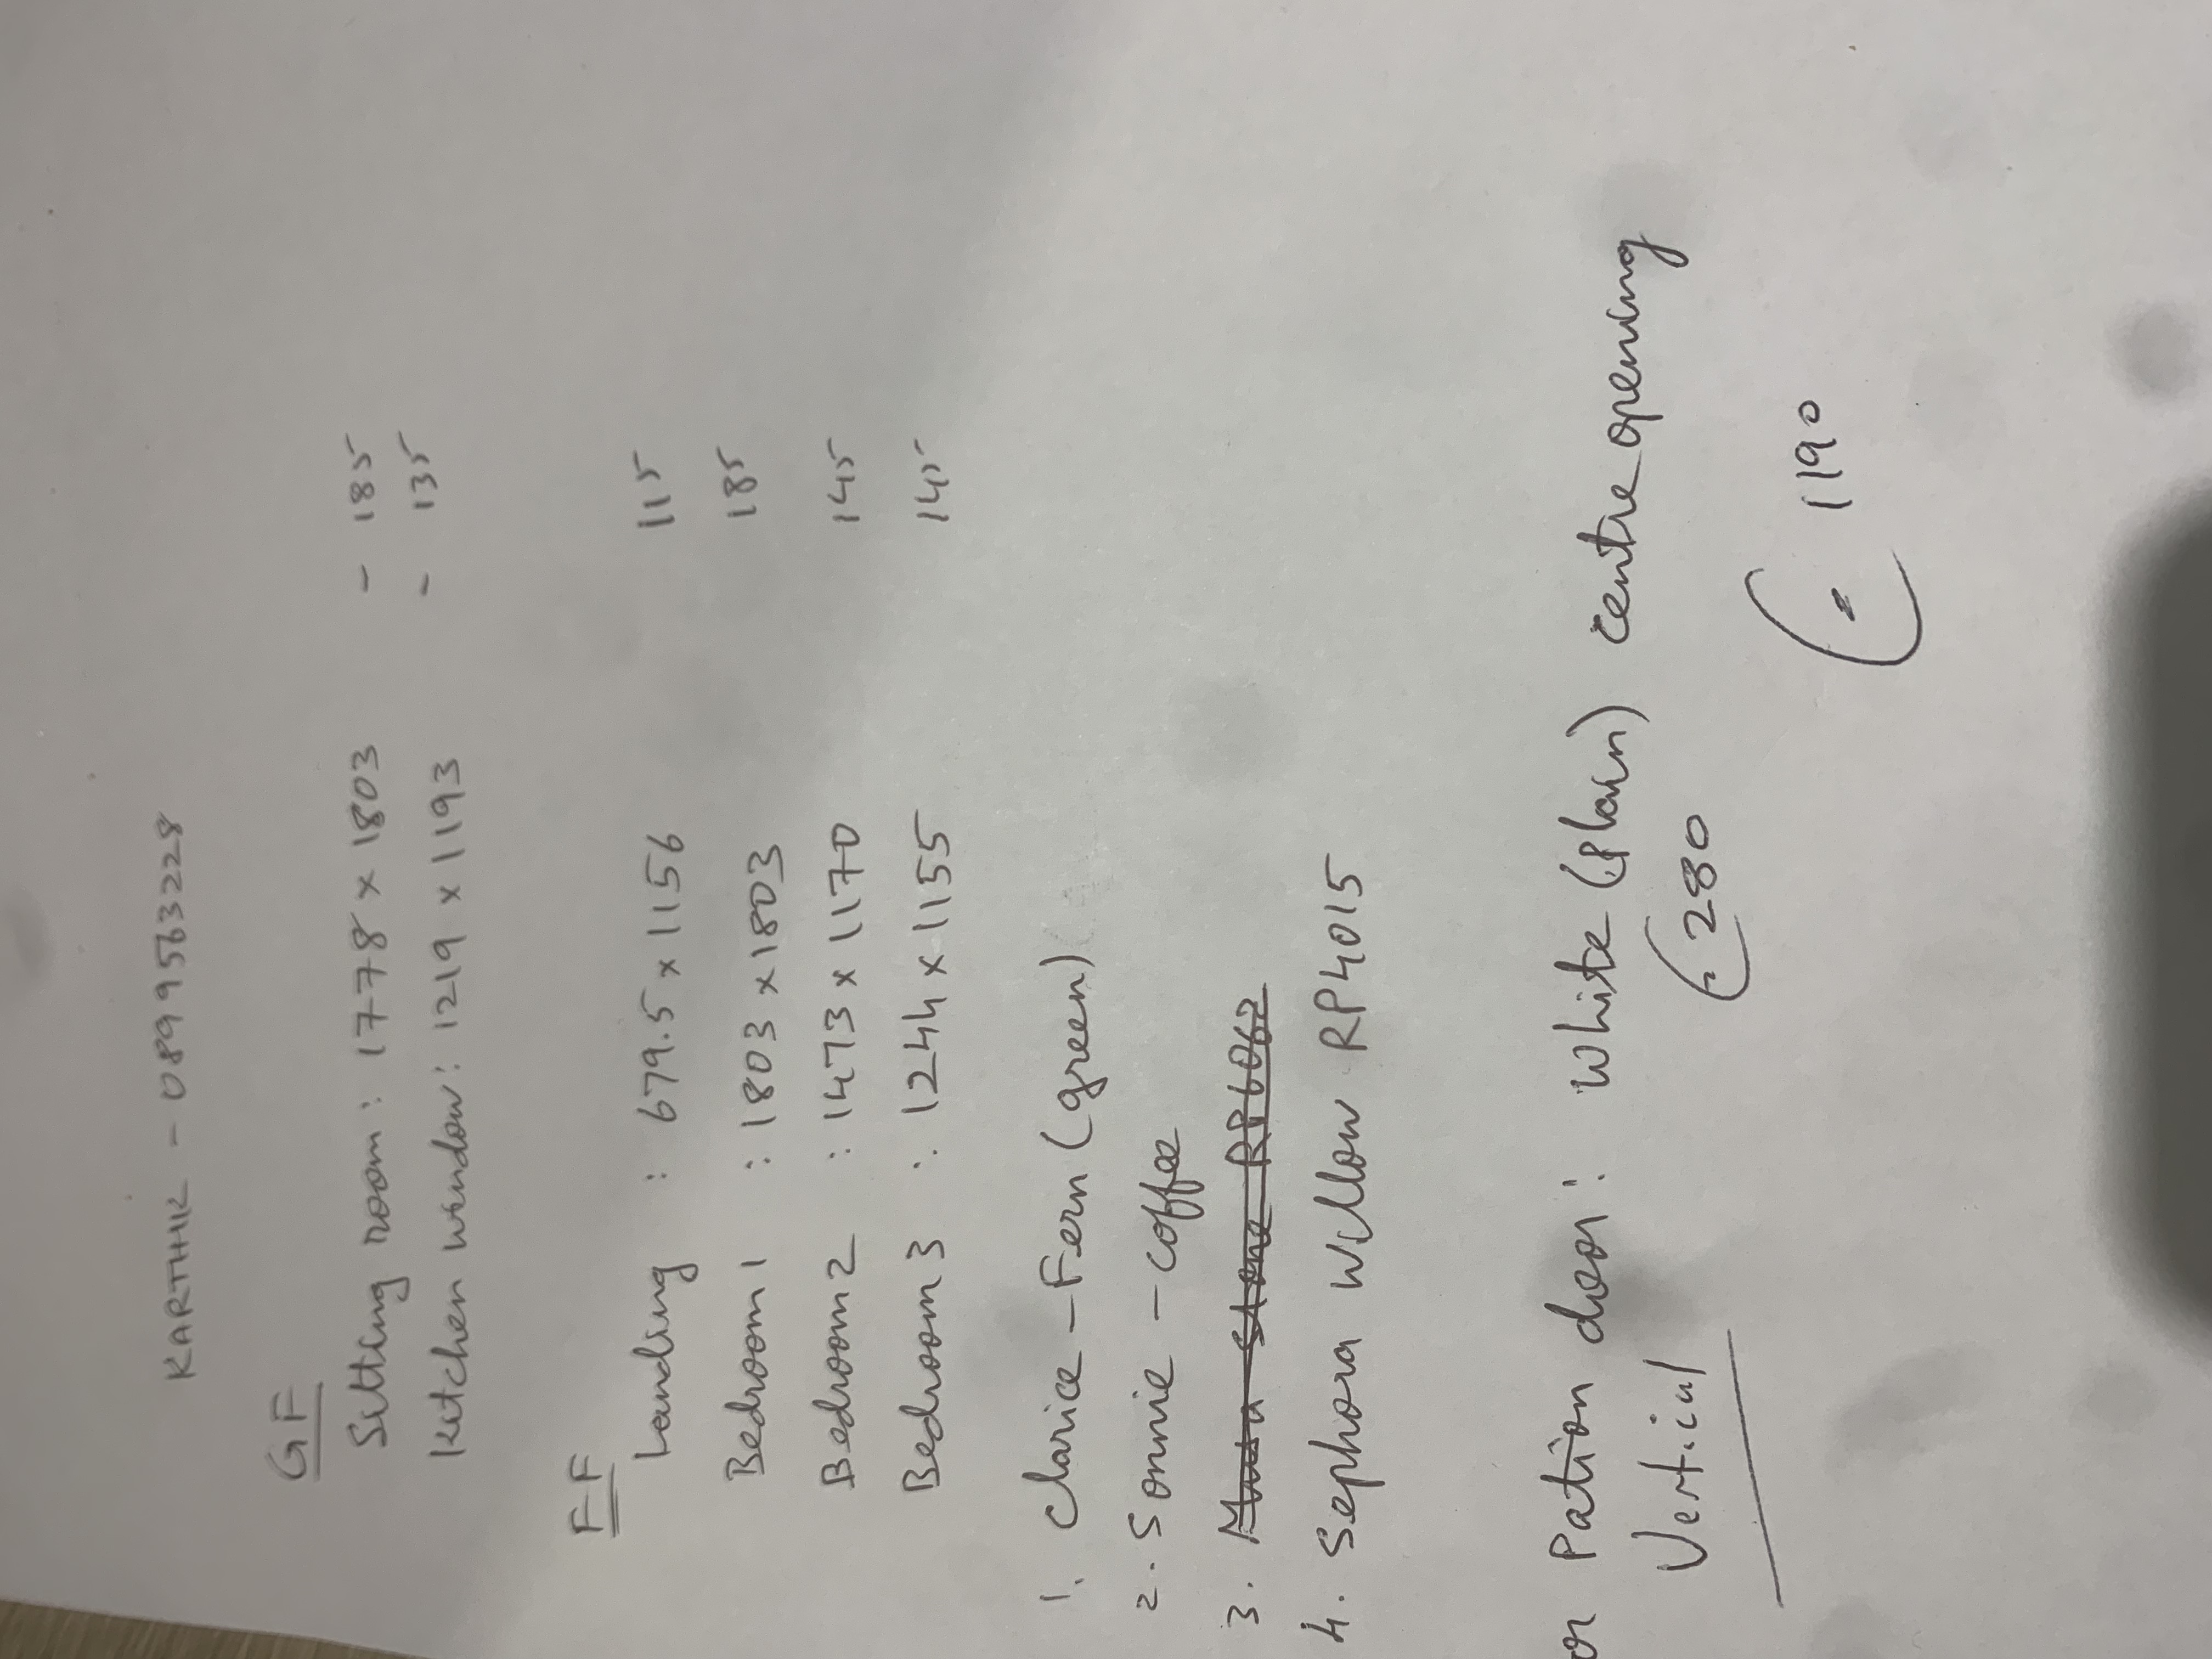 KARTHIK - 0899563228
GF
Sitting room: 1778 x 1803 - 185
Kitchen window: 1219 x 1193 - 135
FF
Landing : 679.5 x 1156 115
Bedroom 1 : 1803 x 1803 185
Bedroom 2 : 1473 x 1170 145
Bedroom 3 : 1244 x 1155 145
1. Clarice - Fern (green)
2. Sonnie - coffee
3. RP6062
4. Sephora Willow RP4015
or Pation door: White (plain) centre opening
Vertical € 280
€ 1190